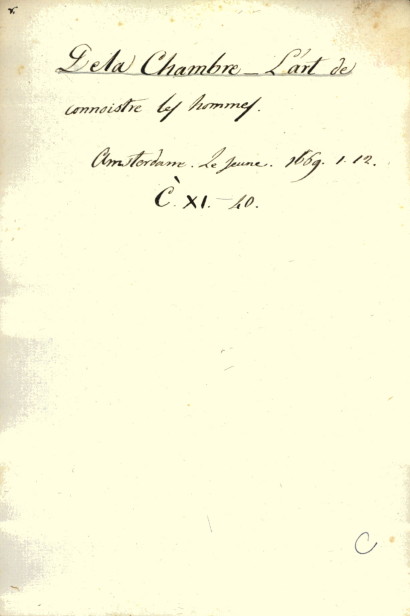 De la Chambre _ L'art de
connoistre les hommes.
Amsterdam. Le Jeune. 1669. 1. 12.
C. XI. - 40.
C